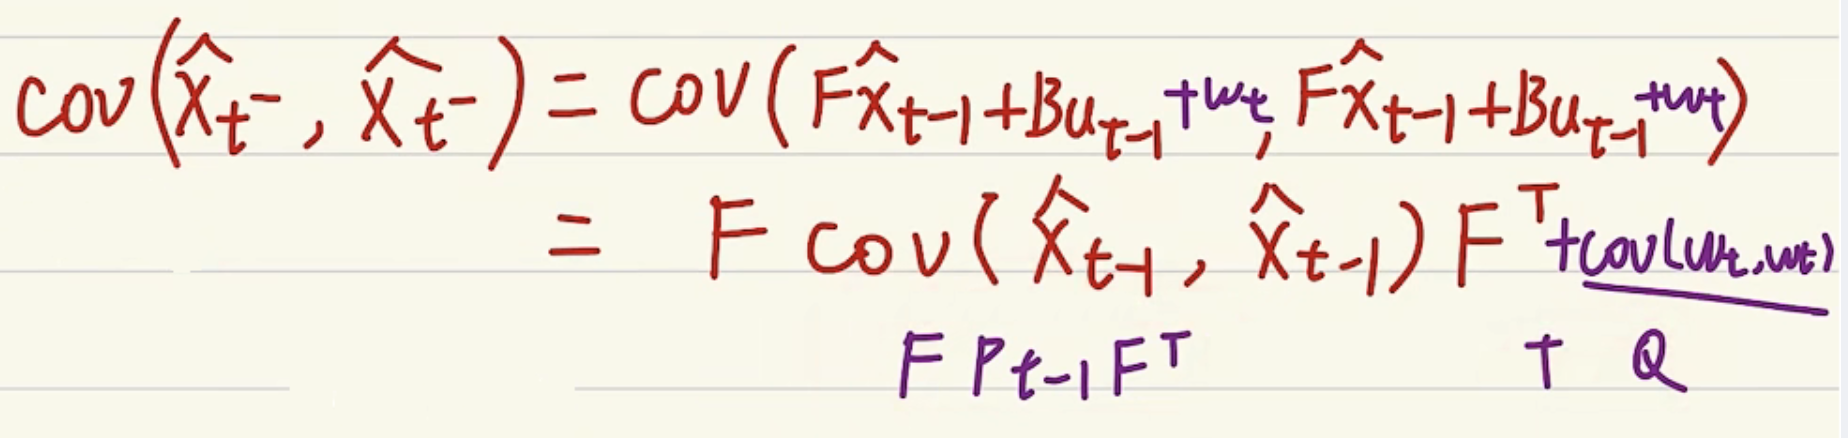 cov(x̂ₜ⁻, x̂ₜ⁻) = cov(Fx̂ₜ₋₁+Buₜ₋₁+wₜ, Fx̂ₜ₋₁+Buₜ₋₁+wₜ)
= F cov(x̂ₜ₋₁, x̂ₜ₋₁) Fᵀ+cov(wₜ,wₜ)
F Pₜ₋₁ Fᵀ + Q